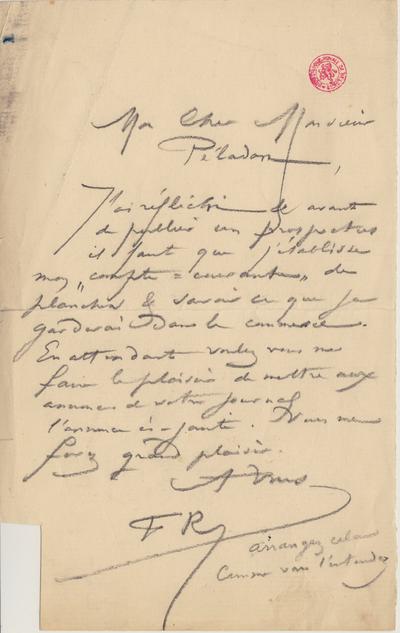 Mon Cher Monsieur
Péladan,
J'ai réfléchi & avant
de publier un prospectus
il faut que j'établisse
mon „compte = courant" de
planches & savoir ce que je
garderai dans le commerce.
En attendant voulez vous me
faire le plaisir de mettre aux
annonces de votre journal
l'annonce ci-jointe. Vous me
ferez grand plaisir.
A Vous
FR
arrangez cela
comme vous l'entendez